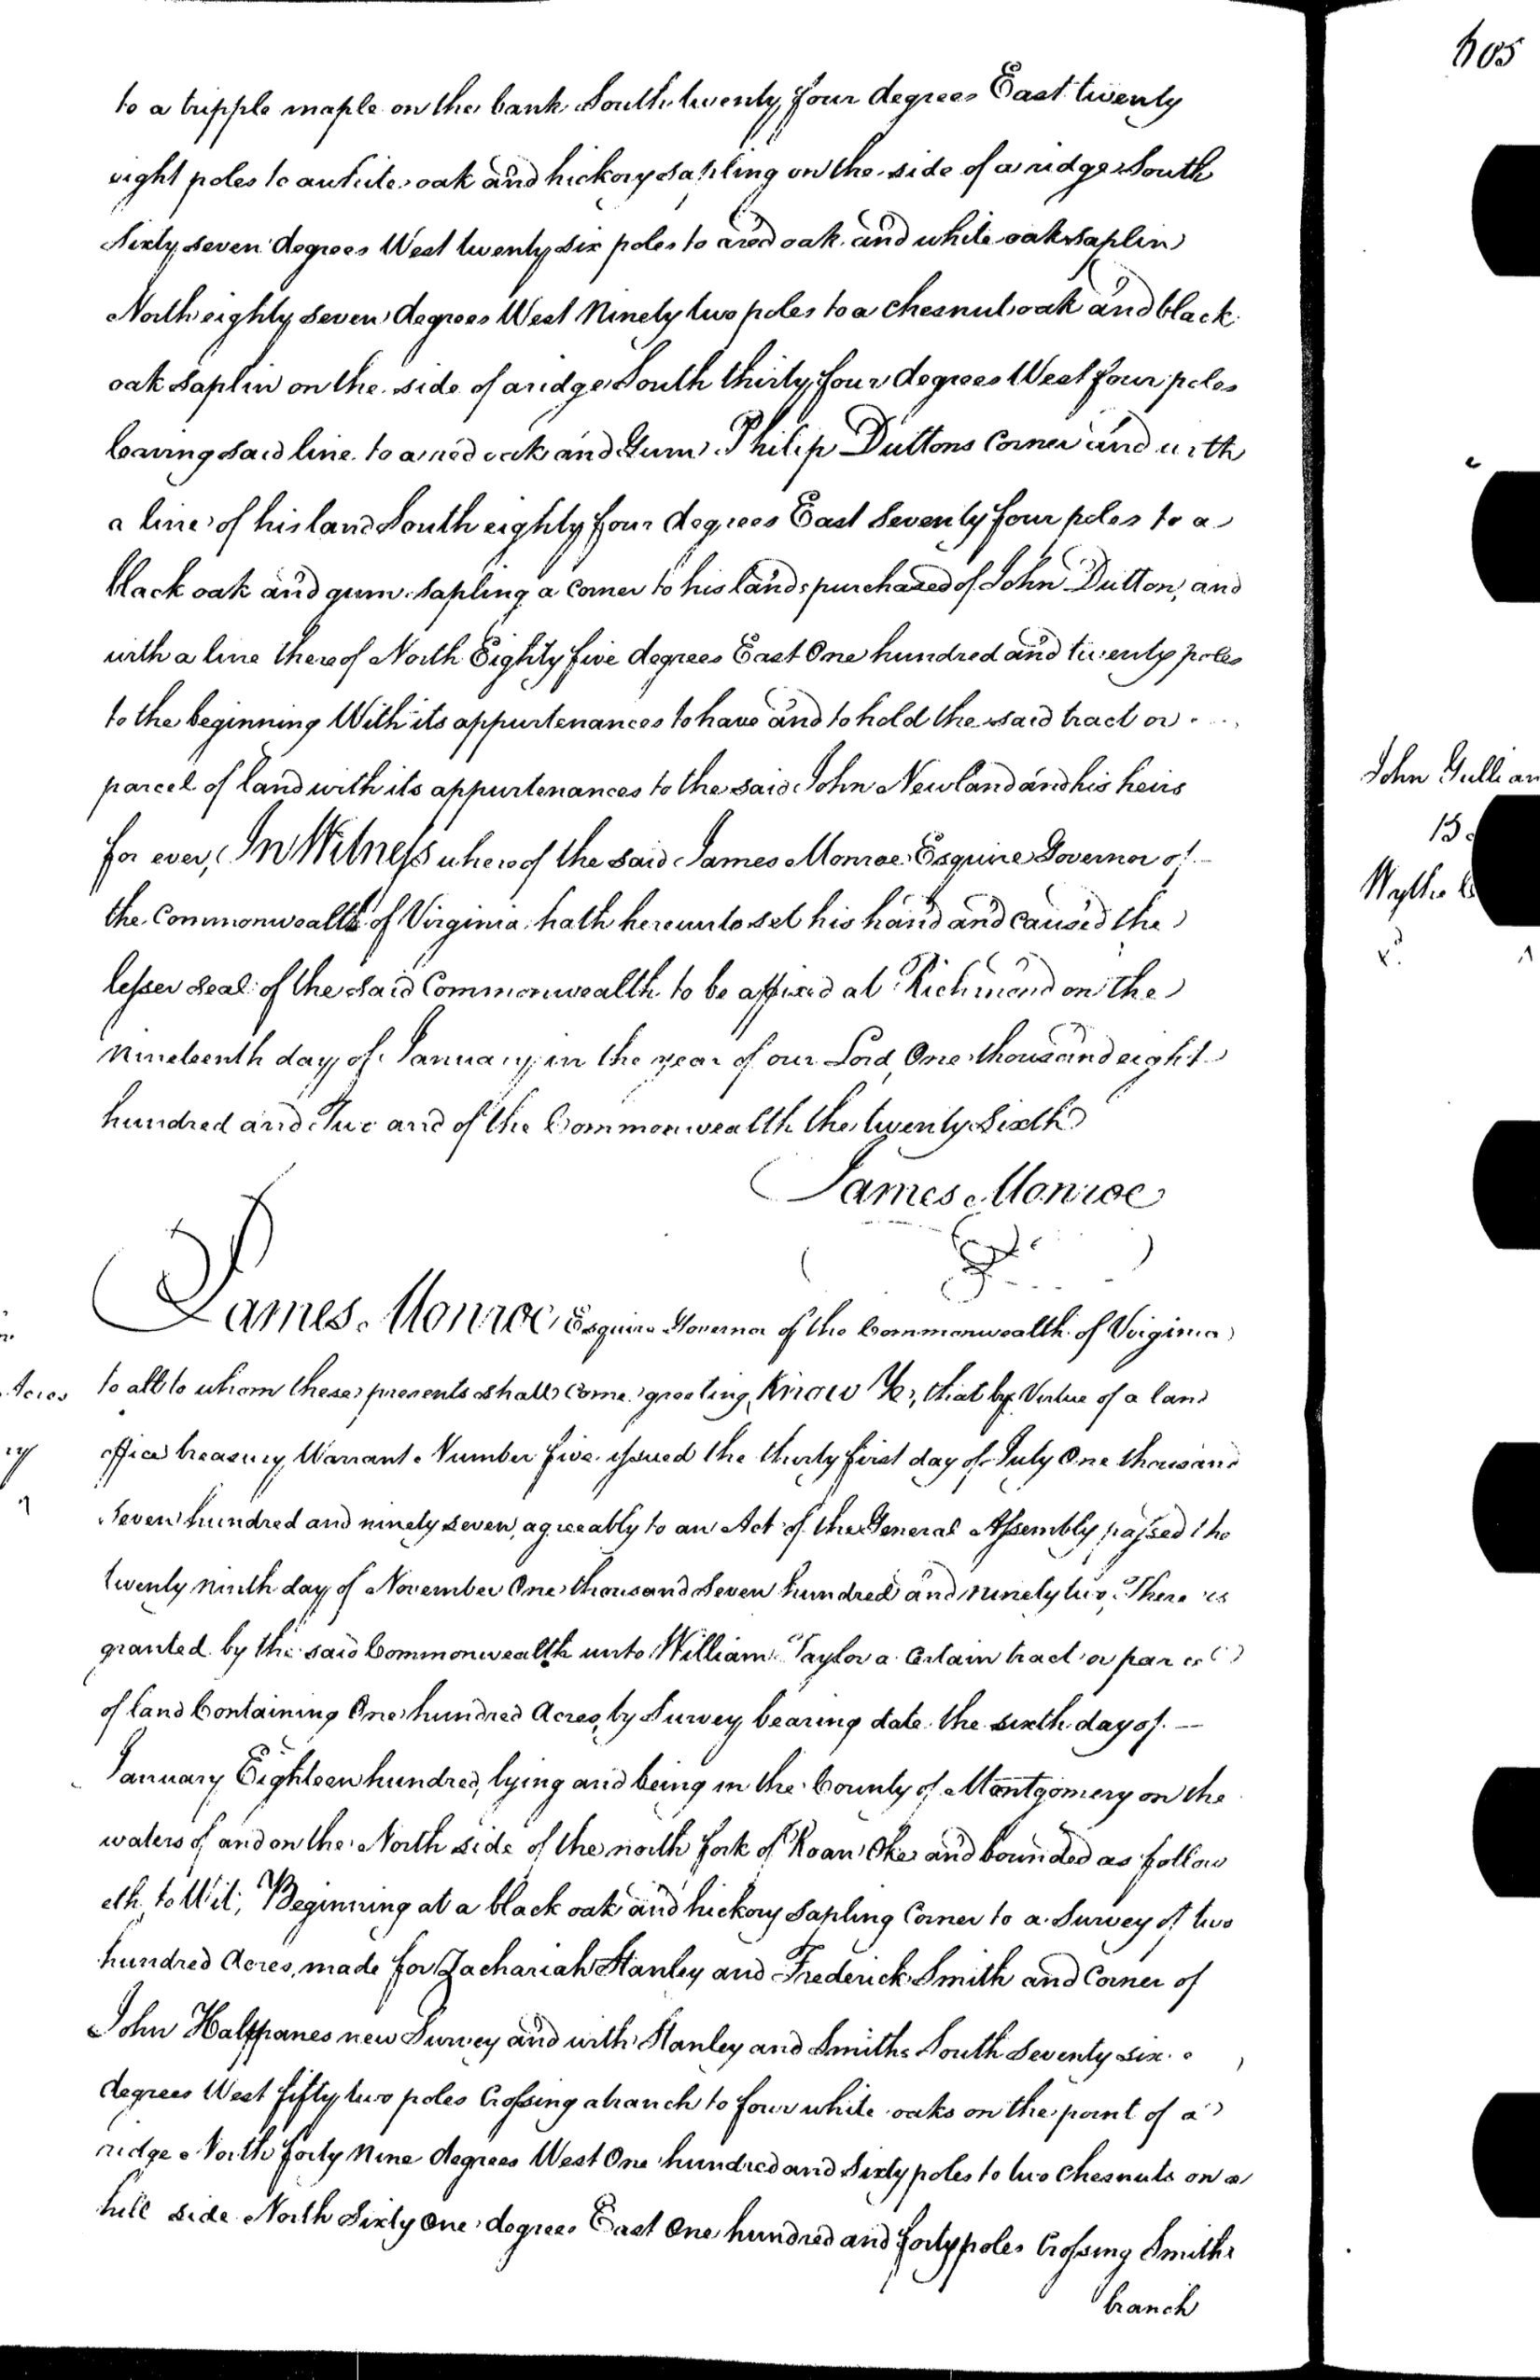 to a tripple maple on the bank South twenty four degrees East twenty
eight poles to a white oak and hickory sapling on the side of a ridge South
Sixty seven degrees West twenty six poles to a red oak and white oak saplin
North eighty seven degrees West Ninety two poles to a chesnut oak and black
oak saplin on the side of a ridge South thirty four degrees West four poles
leaving said line to a red oak and Gum Philip Duttons Corner and with
a line of his land South eighty four degrees East Seventy four poles to a
black oak and gum sapling a corner to his lands purchased of John Dutton, and
with a line thereof North Eighty five degrees East One hundred and twenty poles
to the beginning With its appurtenances to have and to hold the said tract or
parcel of land with its appurtenances to the said John Newland and his heirs
for ever, In Witness whereof the said James Monroe Esquire Governor of
the Commonwealth of Virginia hath hereunto set his hand and caused the
lesser seal of the said Commonwealth to be affixed at Richmond on the
nineteenth day of January in the year of our Lord, One thousand eight
hundred and Two and of the Commonwealth the twenty Sixth
James Monroe
James Monroe Esquire Governor of the Commonwealth of Virginia
to all to whom these presents shall come greeting, Know Ye, that by Virtue of a land
office treasury Warrant Number five issued the thirty first day of July One thousand
Seven hundred and ninety seven, agreeably to an Act of the General Assembly passed the
twenty ninth day of November One thousand Seven hundred and ninety two, There is
granted by the said Commonwealth unto William Taylor a Certain tract or parcel
of land Containing One hundred Acres, by Survey bearing date the sixth day of
January Eighteen hundred, lying and being in the County of Montgomery on the
waters of and on the North side of the north fork of Roan Oke and bounded as follow
eth, to Wit, Beginning at a black oak and hickory sapling Corner to a Survey of two
hundred Acres, made for Zachariah Stanley and Frederick Smith and Corner of
John Halfpanes new Survey and with Stanley and Smiths South Seventy six
degrees West fifty two poles Crossing a branch to four white oaks on the point of a
ridge North forty nine degrees West One hundred and Sixty poles to two chesnuts on a
hill side North Sixty One degrees East One hundred and forty poles Crossing Smiths
branch
Acres
605
John Gullian
Wythe